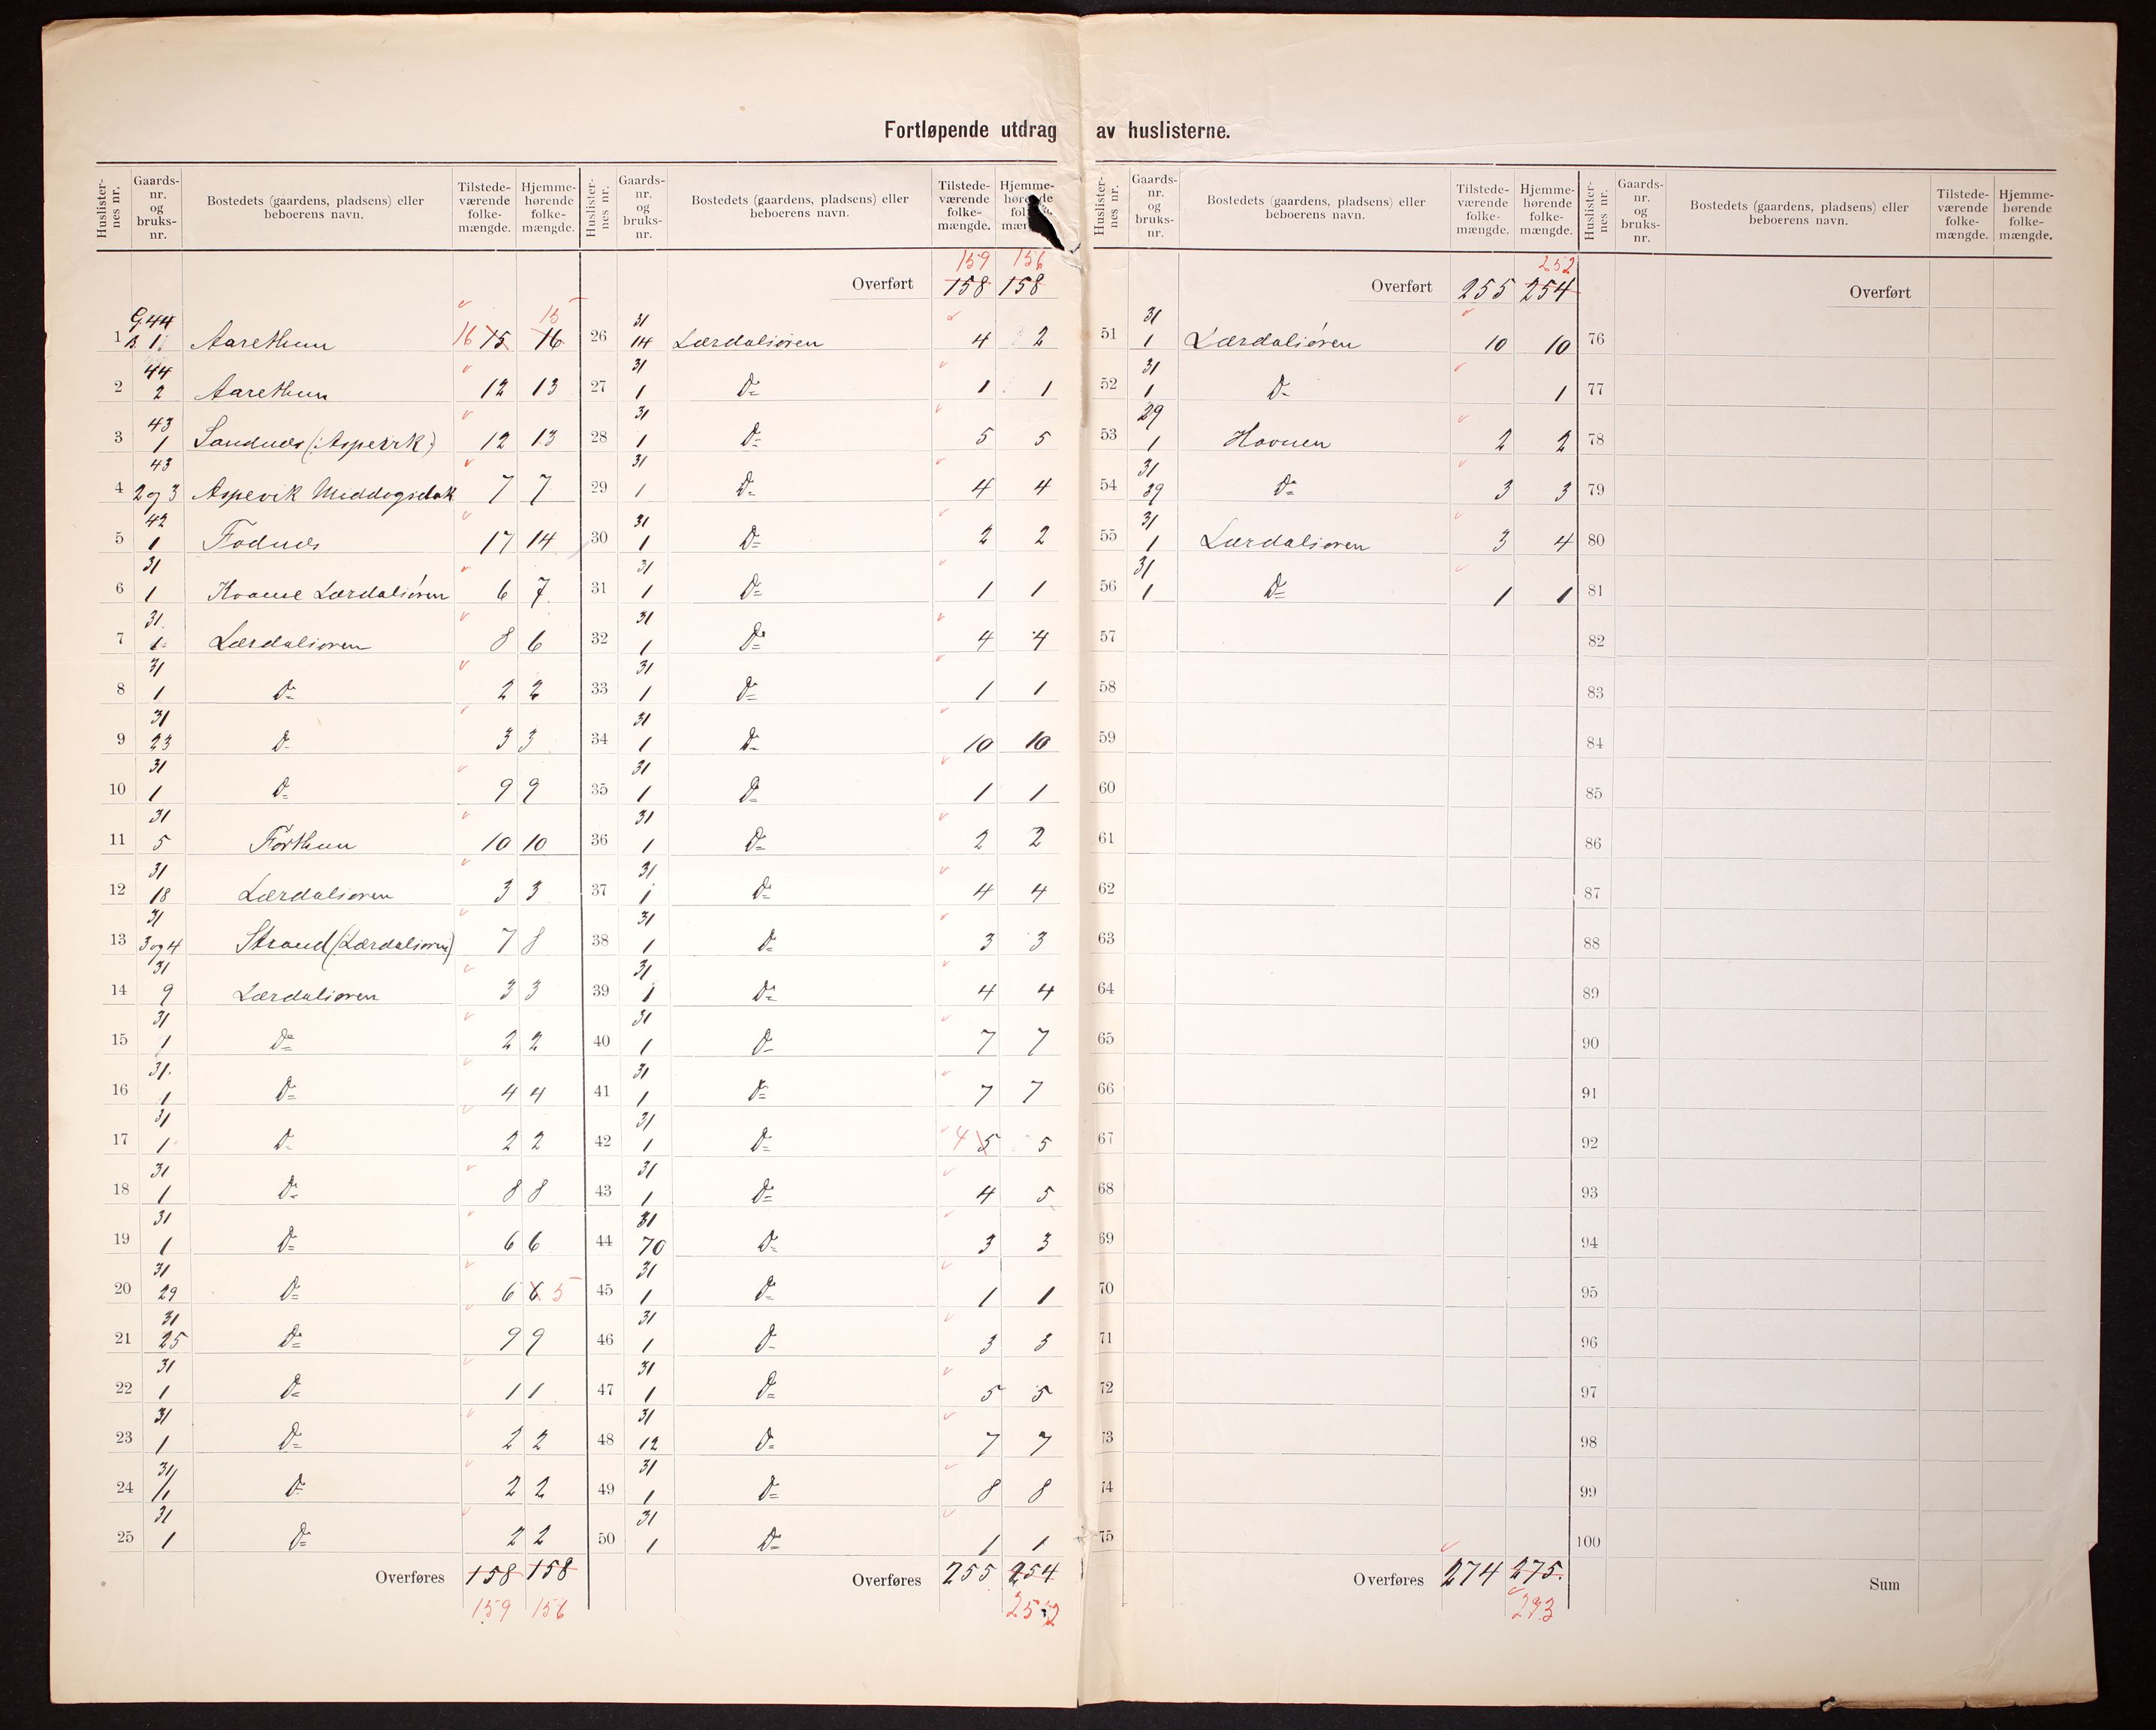 Fortløpende utdrag av huslisterne.
Huslister-nes nr. | Gaards-nr. og bruks-nr. | Bostedets (gaardens, pladsens) eller beboerens navn. | Tilstede-værende folke-mængde. | Hjemme-hørende folke-mængde.
1 G. 44 B. 1. Aarethun 16 15 16 15
2 44 2 Aarethun 12 13
3 43 1 Sandnes (: Aspevik) 12 13
4 43 2 og 3 Aspevik Middagsdak 7 7
5 42 1 Fodnes 17 14
6 31 1 Kvame Lærdalsøren 6 7
7 31 1 Lærdalsøren 8 6
8 31 1 Do 2 2
9 31 23 Do 3 3
10 31 1 Do 9 9
11 31 5 Forthun 10 10
12 31 18 Lærdalsøren 3 3
13 31 3 og 4 Strand (Lærdalsøren) 7 8
14 31 9 Lærdalsøren 3 3
15 31 1 Do 2 2
16 31 1 Do 4 4
17 31 1 Do 2 2
18 31 1 Do 8 8
19 31 1 Do 6 6
20 31 29 Do 6 6 5
21 31 25 Do 9 9
22 31 1 Do 1 1
23 31 1 Do 2 2
24 31 1 Do 2 2
25 31 1 Do 2 2
Overføres 158 158
159 156
Huslister-nes nr. | Gaards-nr. og bruks-nr. | Bostedets (gaardens, pladsens) eller beboerens navn. | Tilstede-værende folke-mængde. | Hjemme-
159 156
Overført 158 158
26 31 14 Lærdalsøren 4 2
27 31 1 Do 1 1
28 31 1 Do 5 5
29 31 1 Do 4 4
30 31 1 Do 2 2
31 31 1 Do 1 1
32 31 1 Do 4 4
33 31 1 Do 1 1
34 31 1 Do 10 10
35 31 1 Do 1 1
36 31 1 Do 2 2
37 31 1 Do 4 4
38 31 1 Do 3 3
39 31 1 Do 4 4
40 31 1 Do 7 7
41 31 1 Do 7 7
42 31 1 Do 4 5 5
43 31 1 Do 4 5
44 31 70 Do 3 3
45 31 1 Do 1 1
46 31 1 Do 3 3
47 31 1 Do 5 5
48 31 12 Do 7 7
49 31 1 Do 8 8
50 31 1 Do 1 1
Overføres 255 254
252
Huslister-nes nr. | Gaards-nr. og bruks-nr. | Bostedets (gaardens, pladsens) eller beboerens navn. | Tilstede-værende folke-mængde. | Hjemme-hørende folke-mængde.
252
Overført 255 254
51 31 1 Lærdalsøren 10 10
52 31 1 Do 1
53 29 1 Hovnen 2 2
54 31 39 Do 3 3
55 31 1 Lærdalsøren 3 4
56 31 1 Do 1 1
57
58
59
60
61
62
63
64
65
66
67
68
69
70
71
72
73
74
75
Overføres 274 275.
273
Huslister-nes nr. | Gaards-nr. og bruks-nr. | Bostedets (gaardens, pladsens) eller beboerens navn. | Tilstede-værende folke-mængde. | Hjemme-hørende folke-mængde.
Overført
76
77
78
79
80
81
82
83
84
85
86
87
88
89
90
91
92
93
94
95
96
97
98
99
100
Sum